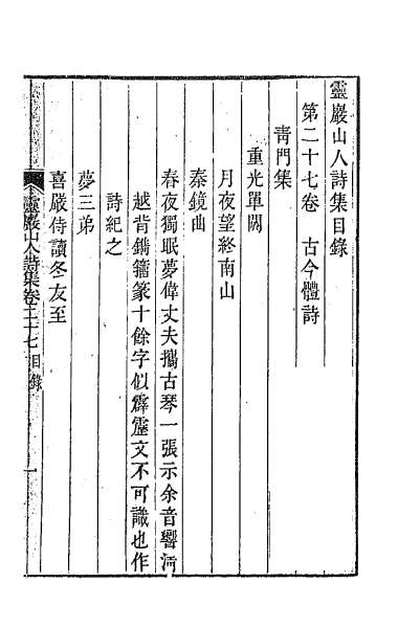 靈巖山人詩集目錄
第二十七卷　古今體詩
靑門集
重光單閼
月夜望終南山
秦鏡曲
春夜獨眠夢偉丈夫攜古琴一張示余音響清
越背鐫籀篆十餘字似霹靂文不可識也作
詩紀之
夢三弟
喜嚴侍讀冬友至
靈巖山人詩集卷二十七 目錄 一